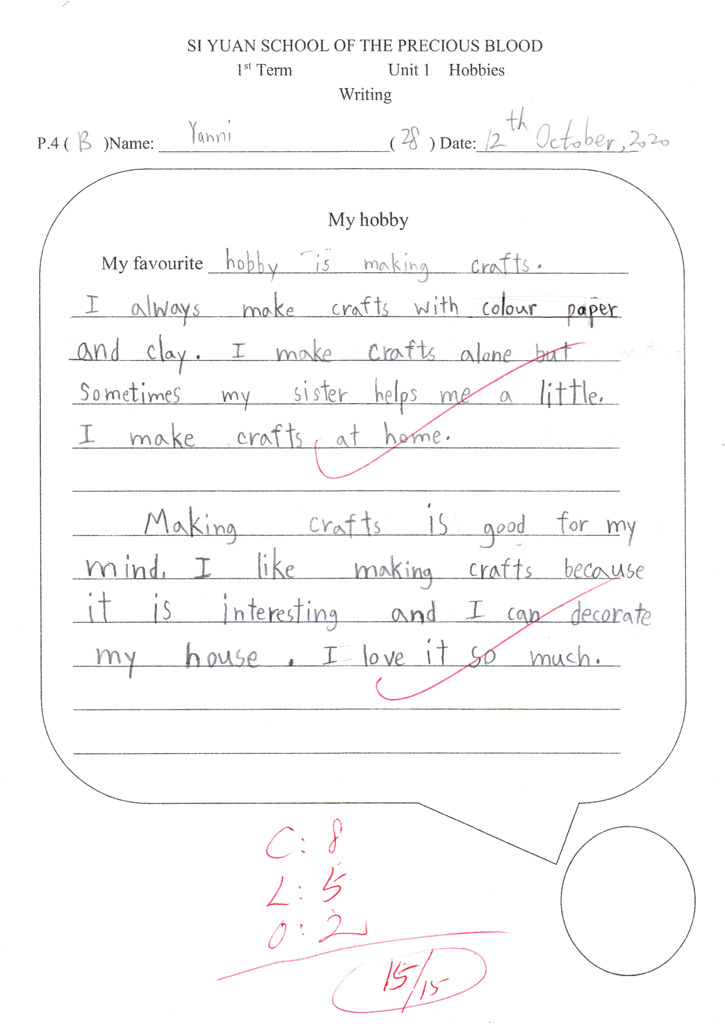 SI YUAN SCHOOL OF THE PRECIOUS BLOOD
1st Term Unit 1 Hobbies
Writing
P.4 ( B )Name: Yanni ( 28 ) Date: 12th October, 2020
My hobby
My favourite hobby is making crafts.
I always make crafts with colour paper
and clay. I make crafts alone but
sometimes my sister helps me a little.
I make crafts at home.
Making crafts is good for my
mind. I like making crafts because
it is interesting and I can decorate
my house. I love it so much.
C: 8
L: 5
O: 2
15/15